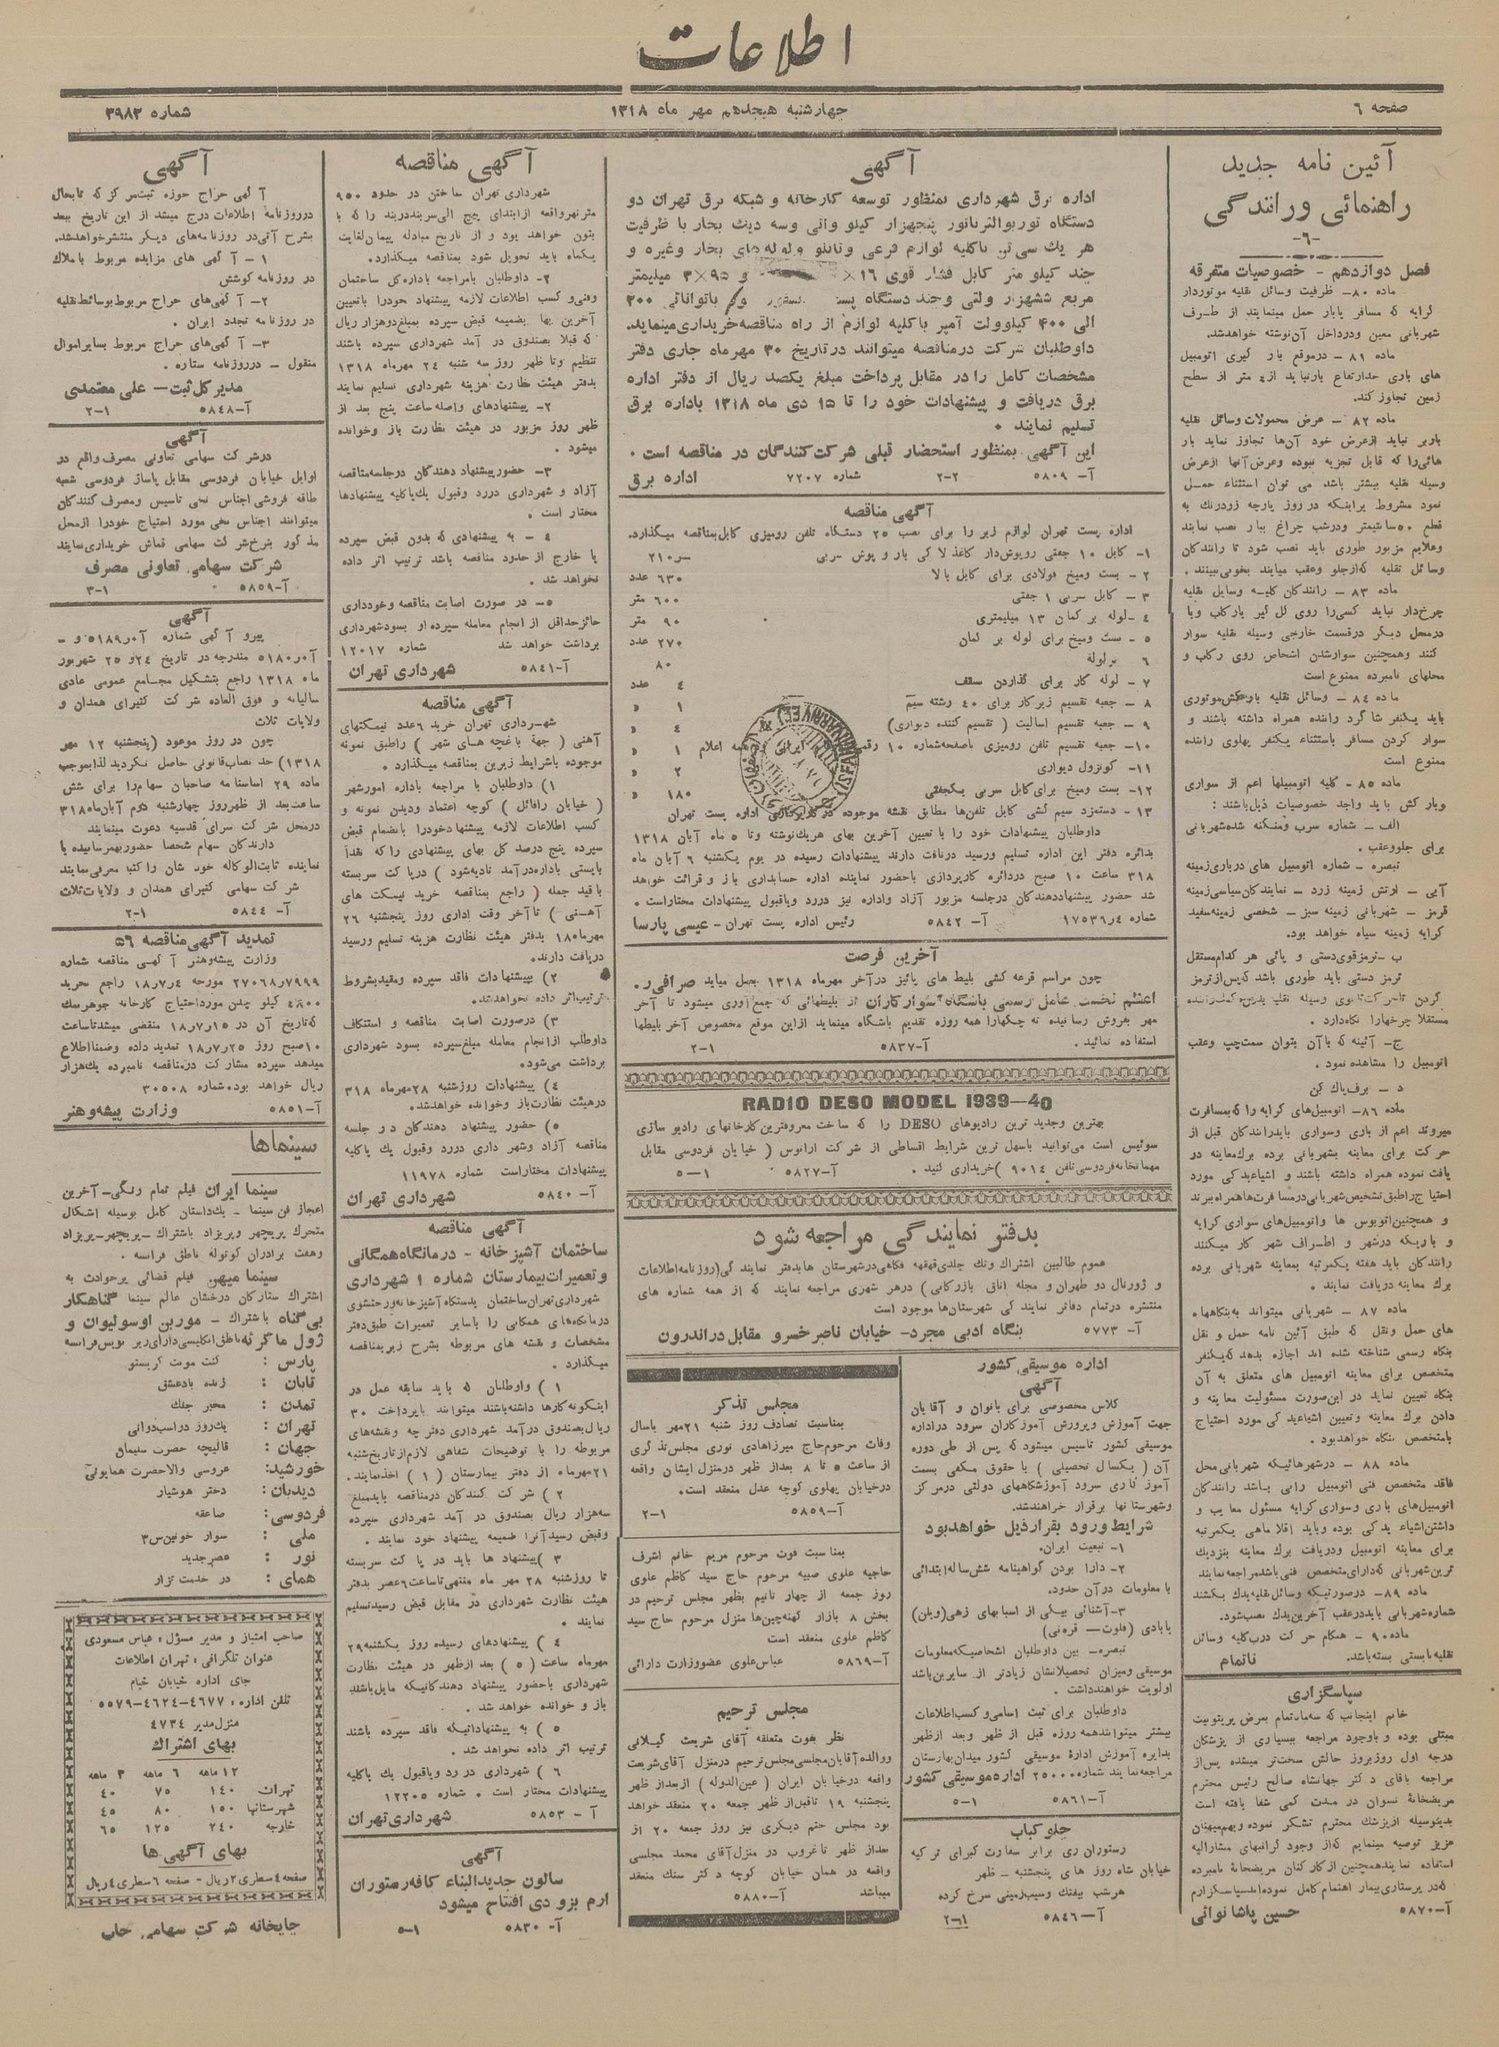 اطلاعات
صفحه ۶
چهارشنبه هیجدهم مهر ماه ۱۳۱۸
شماره ۳۹۸۲
آئین نامه جدید
راهنمائی ورانندگی
-۶-
فصل دوازدهم - خصوصیات متفرقه
ماده ۸۰- ظرفیت وسائل نقلیه موتوردار
کرایه که مسافر یابار حمل مینمایند از طرف
شهربانی معین ودرداخل آن‌نوشته خواهدشد.
ماده ۸۱ - درموقع بار گیری اتومبیل
های باری حدارتفاع بارنباید از۴ متر از سطح
زمین تجاوز کند.
ماده ۸۲ - عرض محمولات وسائل نقلیه
باربر نباید ازعرض خود آن‌ها تجاوز نماید بار
هائی‌را که قابل تجزیه نبوده وعرض آنها ازعرض
وسیله نقلیه بیشتر باشد می توان استثناء حمل
نمود مشروط براینکه در روز پارچه زردرنك به
قطع ۵۰ سانتیمتر ودرشب چراغ ببار نصب نمایند
وعلایم مزبور طوری باید نصب شود تا رانندگان
وسائل نقلیه که‌ازجلو وعقب میایند بخوبی‌ببینند .
ماده ۸۳ - رانندگان کلیه وسایل نقلیه
چرخ‌دار نباید کسی‌را روی گل گیر یارکاب ویا
درمحل دیگر درقسمت خارجی وسیله نقلیه سوار
کنند وهمچنین سوارشدن اشخاص روی رکاب و
محلهای نامبرده ممنوع است
ماده ۸۴ - وسائل نقلیه بارکش‌موتوری
باید یکنفر شاگرد راننده همراه داشته باشند و
سوار کردن مسافر باستثناء یکنفر پهلوی راننده
ممنوع است
ماده ۸۵- کلیه اتومبیلها اعم از سواری
وبارکش باید واجد خصوصیات ذیل‌باشند :
برای جلووعقب.
تبصره - شماره اتومبیل های درباری‌زمینه
آبی - ارتش زمینه زرد - نمایندگان‌سیاسی‌زمینه
قرمز - شهربانی زمینه سبز - شخصی زمینه‌سفید
کرایه زمینه سیاه خواهد بود.
ب -ترمزقوی‌دستی و پائی که هر کدام‌مستقل
مستقلا چرخهارا نگاه‌دارد .
ج- آئینه که باآن بتوان سمت‌چپ وعقب
اتومبیل را مشاهده نمود .
د - برف‌پاك کن
ماده ۸۶- اتومبیل‌های کرایه را که‌بمسافرت
میروند اعم از باری وسواری بایدرانندگان قبل از
حرکت برای معاینه بشهربانی برده برك‌معاینه در
یافت نموده همراه داشته باشند و اشیاءیدکی مورد
احتیاج راطبق تشخیص‌شهربانی‌درمسافرت‌هاهمراه‌ببرند
و همچنین اتوبوس ها واتومبیل‌های سواری کرایه
و باریکه درشهر و اطراف شهر کار میکنند
رانندگان باید هفته یکمرتبه بمعاینه شهربانی برده
برك معاینه دریافت نمایند .
ماده ۸۷ - شهربانی میتواند به‌بنگاهها،
های حمل ونقل که طبق آئین نامه حمل و نقل
بنگاه رسمی شناخته شده اند اجازه بدهد که‌یکنفر
متخصص برای معاینه اتومبیل های متعلق به آن
بنگاه تعیین نماید در این‌صورت مسئولیت معاینه و
دادن برك معاینه وتعیین اشیاءیدکی مورد احتیاج
بامتخصص بنگاه خواهدبود .
ماده ۸۸ - درشهرهائیکه شهربانی‌محل
فاقد متخصص فنی اتومبیل رانی باشد رانندگان
اتومبیل‌های باری وسواری‌کرایه مسئول معایب و
داشتن‌اشیاء یدکی بوده وباید اقلا ماهی یکمرتبه
برای معاینه اتومبیل ودریافت برك معاینه بنزدیك
ترین‌شهربانی که‌دارای‌متخصص فنی باشدمراجعه‌نمایند
ماده ۸۹- درصورتیکه وسائل‌نقلیه‌یدك بکشند
شماره‌شهربانی بایددرعقب آخرین‌یدك نصب‌شود.
ماده ۹۰ - هنگام حرکت درب‌کلیه وسائل
نقلیه‌بایستی بسته‌باشد. ناتمام
سپاسگزاری
خانم اینجانب که سه‌ماه‌تمام بمرض پریتونیت
مبتلی بوده و باوجود مراجعه ببسیاری از پزشکان
درجه اول روزبروز حالش سخت‌تر میشده پس‌از
مراجعه باقای دکتر جهانشاه صالح رئیس محترم
مریضخانهٔ نسوان در مدت کمی شفا یافته است
بدینوسیله ازپزشك محترم تشکر نموده وبهم‌میهنان
عزیز توصیه مینمایم که‌از وجود گرانبهای مشارالیه
استفاده نمایندهمچنین ازکارکنان مریضخانهٔ نامبرده
که‌در پرستاری‌بیمار اهتمام کامل نموده‌اندسپاسگزارم
آ-۵۸۷۰ حسین پاشا نوائی
آگهی
اداره برق شهرداری بمنظور توسعه کارخانه و شبکه برق تهران دو
دستگاه توربوالترناتور پنجهزار کیلو واتی وسه دیك بخار با ظرفیت
هر یك سی‌تن باکلیه لوازم فرعی وتابلو ولوله‌های بخار وغیره و
چند کیلو متر کابل فشار قوی ۱۶× و ۹۵×۳ میلیمتر
مربع ششهزار ولتی وچند دستگاه پست باتوانائی ۲۰۰
الی ۴۰۰ کیلوولت آمپر باکلیه لوازم از راه مناقصه‌خریداری‌مینماید.
داوطلبان شرکت درمناقصه میتوانند درتاریخ ۳۰ مهرماه جاری دفتر
مشخصات کامل را در مقابل پرداخت مبلغ یکصد ریال از دفتر اداره
برق دریافت و پیشنهادات خود را تا ۱۵ دی ماه ۱۳۱۸ باداره برق
تسلیم نمایند .
این آگهی بمنظور استحضار قبلی شرکت‌کنندگان در مناقصه است .
آ- ۵۸۰۹ ۲-۲ شماره ۷۲۰۷ اداره برق
آگهی مناقصه
اداره پست تهران لوازم زیر را برای نصب ۲۵ دستگاه تلفن رومیزی کابل‌بمناقصه میگذارد.
۱- کابل ۱۰ جفتی روپوش‌دار کاغذ لاکی بار و پوش سربی ۲۱۰
۲ - بست ومیخ فولادی برای کابل بالا ۶۳۰ عدد
۳ - کابل سربی ۱ جفتی ۶۰۰ متر
۴ -لوله برگمان ۱۳ میلیمتری ۹۰ متر
۵ - بست ومیخ‌برای لوله برگمان ۲۷۰ عدد
۶ سرلوله ۸۰
۷ - لوله کار برای گذاردن سقف ۴ عدد
۸ - جعبه تقسیم زیرکار برای ۴۰ رشته سیم ۱ »
۹ - جعبه تقسیم اسالیت ( تقسیم کننده دیواری) ۴ »
۱۰- جعبه تقسیم تلفن رومیزی باصفحه‌شماره ۱۰ رقمی ایرانی اعلام ۱ »
۱۱- کونزول دیواری ۲ »
۱۲- بست ومیخ برای‌کابل سربی یکجفتی ۱۸۰ »
۱۳ - دستمزد سیم کشی کابل تلفن‌ها مطابق نقشه موجوده اداره پست تهران
داوطلبان پیشنهادات خود را با تعیین آخرین بهای هریك‌نوشته وتا ۵ ماه آبان ۱۳۱۸
بدائره دفتر این اداره تسلیم ورسید دریافت دارند پیشنهادات رسیده در یوم یکشنبه ۶ آبان ماه
۳۱۸ ساعت ۱۰ صبح دردائره کارپردازی باحضور نماینده اداره حسابداری باز و قرائت خواهد
شد حضور پیشنهاددهندگان درجلسه مزبور آزاد واداره نیز دررد ویاقبول پیشنهادات مختاراست .
شماره ۱۷۵۳۶ر۴ آ- ۵۸۴۲ رئیس اداره پست تهران - عیسی پارسا
آخرین فرصت
چون مراسم قرعه کشی بلیط های پائیز درآخر مهرماه ۱۳۱۸ بعمل میاید صرافی ر.
اعتلم نخست عامل رسمی باشگاه‌سوارکاران از بلیطهائی که جمع‌آوری میشود تا آخر
مهر بفروش رسانیده ته چکهارا همه روزه تقدیم باشگاه مینماید ازاین موقع مخصوص آخر بلیطها
استفاده نمائید . آ-۵۸۳۷ ۲-۱
RADIO DESO MODEL 1939—40
بهترین وجدید ترین رادیوهای DESO را که ساخت معروفترین‌کارخانهای رادیو سازی
سوئیس است می‌توانید باسهل ترین شرایط اقساطی از شرکت ارانوس ( خیابان فردوسی مقابل
مهمانخانه‌فردوسی‌تلفن ۹۰۱۴ )خریداری کنید . آ-۵۸۲۷ ۵-۱
بدفتر نمایندگی مراجعه شود
عموم طالبین اشتراك وتك جلدی‌قهقهه فکاهی‌درشهرستان هابدفتر نمایندگی(روزنامه‌اطلاعات
و ژورنال دو طهران و مجله اتاق بازرگانی) درهر شهری مراجعه نمایند که از همه شماره های
منتشره درتمام دفاتر نمایندگی شهرستان‌ها موجود است
آ- ۵۷۷۳ بنگاه ادبی مجرد- خیابان ناصرخسرو مقابل‌دراندرون
اداره موسیقی کشور
آگهی
کلاس مخصوصی برای بانوان و آقایان
جهت آموزش وپرورش آموزگاران سرود دراداره
موسیقی کشور تاسیس میشود که پس از طی دوره
آن ( یکسال تحصیلی ) با حقوق مکفی بسمت
آموزگاری سرود آموزشگاههای دولتی درمرکز
وشهرستانها برقرار خواهندشد.
شرایط ورود بقرارذیل خواهدبود
۱- تبعیت ایران.
۲- دارا بودن گواهینامه شش‌ساله‌ابتدائی
یا معلومات درآن حدود.
۳-آشنائی بیکی از اسبابهای زهی(ویلن)
یابادی (فلوت- قره‌نی)
تبصره- بین داوطلبان اشخاصیکه‌معلومات
موسیقی ومیزان تحصیلاتشان زیادتر از سایرین‌باشد
اولویت خواهندداشت .
داوطلبان برای ثبت اسامی‌وکسب‌اطلاعات
بیشتر میتوانندهمه روزه قبل از ظهر وبعد ازظهر
بدایره آموزش ادارهٔ موسیقی کشور میدان‌بهارستان
مراجعه‌نمایند شماره۲۵۰۰۰ اداره‌موسیقی‌کشور
آ-۵۸۶۱ ۵-۱
چلوکباب
رستوران ری برابر سفارت کبرای ترکیه
خیابان شاه روز های پنجشنبه - ظهر
هرشب بیفتك وسیب‌زمینی سرخ کرده
آ- ۵۸۴۶ ۲-۱
مجلس تذکر
بمناسبت تصادف روز شنبه ۲۱مهر باسال
وفات مرحوم‌حاج میرزاهادی نوری مجلس‌تذکری
از ساعت ۵ تا ۸ بعداز ظهر درمنزل ایشان واقعه
درخیابان پهلوی کوچه عدل منعقد است.
آ-۵۸۵۹ ۲-۱
بمناسبت فوت مرحوم مریم خانم اشرف
حاجیه علوی صبیه مرحوم حاج سید کاظم علوی
روز جمعه از چهار تانیم بظهر مجلس ترحیم در
بخش ۸ بازار کهنه‌چین‌ها منزل مرحوم حاج سید
کاظم علوی منعقد است
آ-۵۸۶۹ عباس‌علوی عضووزارت دارائی
مجلس ترحیم
نظر بفوت متعلقه آقای شریعت گیلانی
ووالده آقایان‌مجلسی‌مجلس‌ترحیم درمنزل آقای‌شریعت
واقعه درخیابان ایران ( عین‌الدوله ) ازبعداز ظهر
پنجشنبه ۱۹ تاقبل‌از ظهر جمعه ۲۰ منعقد خواهد
بود مجلس ختم دیگری نیز روز جمعه ۲۰ از
بعداز ظهر تاغروب در منزل‌آقای محمد مجلسی
واقعه در همان خیابان کوچه دکتر سنك منعقد
میباشد آ-۵۸۸۰
آگهی مناقصه
شهرداری تهران ساختن در حدود ۹۵۰
مترنهرواقعه ازابتدای پیچ الی‌سربنددربند را که با
بتون خواهد بود و از تاریخ مبادله پیمان‌لغایت
یکماه باید تحویل شود بمناقصه میگذارد.
۲- داوطلبان بامراجعه باداره‌کل ساختمان
وفنی‌و کسب اطلاعات لازمه پیشنهاد خودرا باتعیین
آخرین بها بضمیمه قبض سپرده بمبلغ‌دوهزار ریال
که قبلا بصندوق درآمد شهرداری سپرده باشند
تنظیم وتا ظهر روز سه شنبه ۲۴ مهرماه ۱۳۱۸
بدفتر هیئت نظارت هزینه شهرداری تسلیم نمایند
۲- پیشنهادهای واصله‌ساعت پنج بعد از
ظهر روز مزبور در هیئت نظارت باز وخوانده
میشود .
۳- حضورپیشنهاد دهندگان درجلسه‌مناقصه
آزاد و شهرداری دررد وقبول یك‌یاکلیه پیشنهادها
مختار است .
۴ - به پیشنهادی که بدون قبض سپرده
یا خارج از حدود مناقصه باشد ترتیب اثر داده
نخواهد شد .
۵- در صورت اصابت مناقصه وخودداری
حائزحداقل از انجام معامله سپرده او بسودشهرداری
برداشت خواهد شد شماره ۱۲۰۱۷
آ-۵۸۴۱ شهرداری تهران
آگهی مناقصه
شهرداری تهران خرید ۶عدد نیمکتهای
آهنی ( جهة باغچه های شهر ) راطبق نمونه
موجوده باشرایط زیرین بمناقصه میگذارد .
۱) داوطلبان با مراجعه باداره امورشهر
( خیابان رافائل ) کوچه اعتماد ودیدن نمونه و
کسب اطلاعات لازمه پیشنهاد خودرا بانضمام قبض
سپرده پنج درصد کل بهای پیشنهادی را که نقداً
بایستی باداره‌درآمد تادیه‌شود ) درپاکت سربسته
باقید جمله ( راجع بمناقصه خرید نیمکت های
آهنی ) تاآخر وقت اداری روز پنجشنبه ۲۶
مهرماه۱۸ بدفتر هیئت نظارت هزینه تسلیم ورسید
دریافت دارند.
۲) بپیشنهادات فاقد سپرده ومقیدبشروط
ترتیب‌اثر داده نخواهدشد.
۳) درصورت اصابت مناقصه و استنکاف
داوطلب ازانجام معامله مبلغ‌سپرده بسود شهرداری
برداشت می‌شود.
۴) پیشنهادات روزشنبه ۲۸مهرماه ۳۱۸
درهیئت نظارت‌باز وخوانده خواهدشد.
۵) حضور پیشنهاد دهندگان در جلسه
مناقصه آزاد وشهرداری دررد وقبول یك یاکلیه
پیشنهادات مختاراست شماره ۱۱۹۷۸
آ- ۵۸۴۰ شهرداری تهران
آگهی مناقصه
ساختمان آشپزخانه - درمانگاه‌همگانی
وتعمیرات‌بیمارستان شماره ۱ شهرداری
شهرداری‌تهران‌ساختمان یکدستگاه آشپزخانه‌ورختشوی
درمانگاه‌های همگانی را باسایر تعمیرات طبق‌دفتر
مشخصات و نقشه های مربوطه بشرح زیربمناقصه
میگذارد .
۱ ) داوطلبان که باید سابقه عمل در
اینگونه‌کارها داشته‌باشند میتوانند باپرداخت ۳۰
ریال‌بصندوق درآمد شهرداری دفترچه ونقشه‌های
مربوطه را با توضیحات شفاهی لازم‌ازتاریخ‌شنبه
۲۱مهرماه از دفتر بیمارستان (۱) اخذنمایند.
۲ ) شرکت کنندگان درمناقصه بایدمبلغ
سه‌هزار ریال بصندوق درآمد شهرداری سپرده
وقبض رسیدآنرا ضمیمه پیشنهاد خود نمایند .
۳ )پیشنهاد ها باید در پاکت سربسته
تا روزشنبه ۲۸ مهر ماه منتهی‌تاساعت۶عصر بدفتر
هیئت نظارت شهرداری در مقابل قبض رسیدتسلیم
نمایند .
۴ ) پیشنهادهای رسیده روز یکشنبه۲۹
مهرماه ساعت (۵) بعد ازظهر در هیئت نظارت
شهرداری باحضور پیشنهاد دهندگانیکه مایل‌باشند
باز و خوانده خواهد شد .
۵ ) به پیشنهاداتیکه فاقد سپرده باشند
ترتیب اثر داده نخواهد شد .
۶ ) شهرداری در رد ویاقبول یك یاکلیه
پیشنهادات مختار است . شماره ۱۲۲۰۵
آ - ۵۸۵۳ شهرداری‌تهران
آگهی
سالون جدیدالبناء کافه‌رستوران
ارم بزودی افتتاح میشود
آ- ۵۸۳۰ ۵-۱
آگهی
آگهی حراج حوزه ثبت‌مرکز که تابحال
درروزنامه اطلاعات درج میشد از این تاریخ ببعد
بشرح آتی‌در روزنامه‌های دیگر منتشرخواهدشد.
۱ - آگهی های مزایده مربوط باملاك
در روزنامه کوشش
۲- آگهی‌های حراج مربوط‌بوسائط‌نقلیه
در روزنامه تجدد ایران .
۳- آگهی‌های حراج مربوط بسایراموال
منقول - درروزنامه ستاره .
مدیرکل‌ثبت- علی معتمدی
آ-۵۸۴۸ ۲-۱
آگهی
درشرکت سهامی تعاونی مصرف واقع در
اوایل خیابان فردوسی مقابل پاساژ فردوسی شعبه
طاقه فروشی‌اجناس نخی تاسیس ومصرف کنندگان
میتوانند اجناس نخی مورد احتیاج خودرا ازمحل
مذکور بنرخ‌شرکت سهامی قماش خریداری‌نمایند
شرکت سهامی تعاونی مصرف
آ-۵۸۵۹ ۳-۱
آگهی
پیرو آگهی شماره آ-ر۵۱۸۹ و -
آ-ر۵۱۸۰ مندرجه در تاریخ ۲۴و ۲۵ شهریور
ماه ۱۳۱۸ راجع بتشکیل مجامع عمومی عادی
سالیانه و فوق العاده شرکت کتیرای همدان و
ولایات ثلاث
چون در روز موعود (پنجشنبه ۱۲ مهر
۱۳۱۸) حد نصاب‌قانونی حاصل نگردید لذابموجب
ماده ۲۹ اساسنامه صاحبان سهام‌را برای شش
ساعت‌بعد از ظهرروز چهارشنبه دوم آبان‌ماه۳۱۸
درمحل شرکت سرای قدسیه دعوت مینمایند
دارندگان سهام شخصا حضوربهمرسانیده یا
نماینده ثابت‌الوکاله خود شان را کتبا معرفی‌نمایند
شرکت سهامی کتیرای همدان و ولایات‌ثلاث
آ- ۵۸۴۴ ۲-۱
تمدید آگهی‌مناقصه ۵۶
وزارت پیشه‌وهنر آگهی مناقصه شماره
۷۹۹۹ر۲۷۰۶۸ مورخه ۱۸ر۷ر۴ راجع بخرید
۴۸۰۰ کیلو چدن مورداحتیاج کارخانه جوهرنمك
که‌تاریخ آن در ۱۸ر۷ر۱۵ منقضی میشدتاساعت
۱۰صبح روز ۱۸ر۷ر۲۵ تمدید داده وضمنااطلاع
میدهد سپرده مشارکت درمناقصه نامبرده یك‌هزار
ریال خواهد بود.شماره ۳۰۵۰۸
آ-۵۸۵۱ وزارت پیشه‌وهنر
سینماها
سینما ایران فیلم تمام رنگی- آخرین
اعجاز فن سینما - یك‌داستان کامل بوسیله اشکال
متحرك پریچهر وپریزاد باشتراك- پریچهر- پریزاد
وهفت برادران کوتوله ناطق فرانسه .
سینما میهن فیلم قضائی پرحوادث به
اشتراك ستارگان درخشان عالم سینما گناهکار
بی‌گناه باشتراك - مورین اوسولیوان و
ژول ماگرته ناطق‌انگلیسی‌دارای‌زیر نویس‌فرانسه
پارس : کنت موت کریستو
تابان : زنده بادعشق
تمدن : مخبر جنك
تهران : یك‌روز دراسب‌دوانی
جهان: قالیچه حضرت سلیمان
خورشید: عروسی والاحضرت همایونی
دیدبان: دختر هوشیار
فردوسی: صاعقه
ملی : سوار خونین‌س۳
نور : عصرجدید
همای : در خدمت تزار
صاحب امتیاز و مدیر مسؤل: عباس مسعودی
عنوان تلگرافی: تهران اطلاعات
جای اداره خیابان خیام
تلفن اداره: ۴۶۷۷-۴۶۲۴-۵۵۷۹
منزل‌مدیر ۴۷۳۴
بهای اشتراك
۱۲ ماهه ۶ ماهه ۳ ماهه
تهران ۱۴۰ ۷۵ ۴۰
شهرستانها ۱۵۰ ۸۰ ۴۵
خارجه ۲۴۰ ۱۲۵ ۶۵
بهای آگهی ها
صفحه ۴سطری ۲ریال - صفحه ۶سطری ۴ریال
چاپخانه شرکت سهامی چاپ